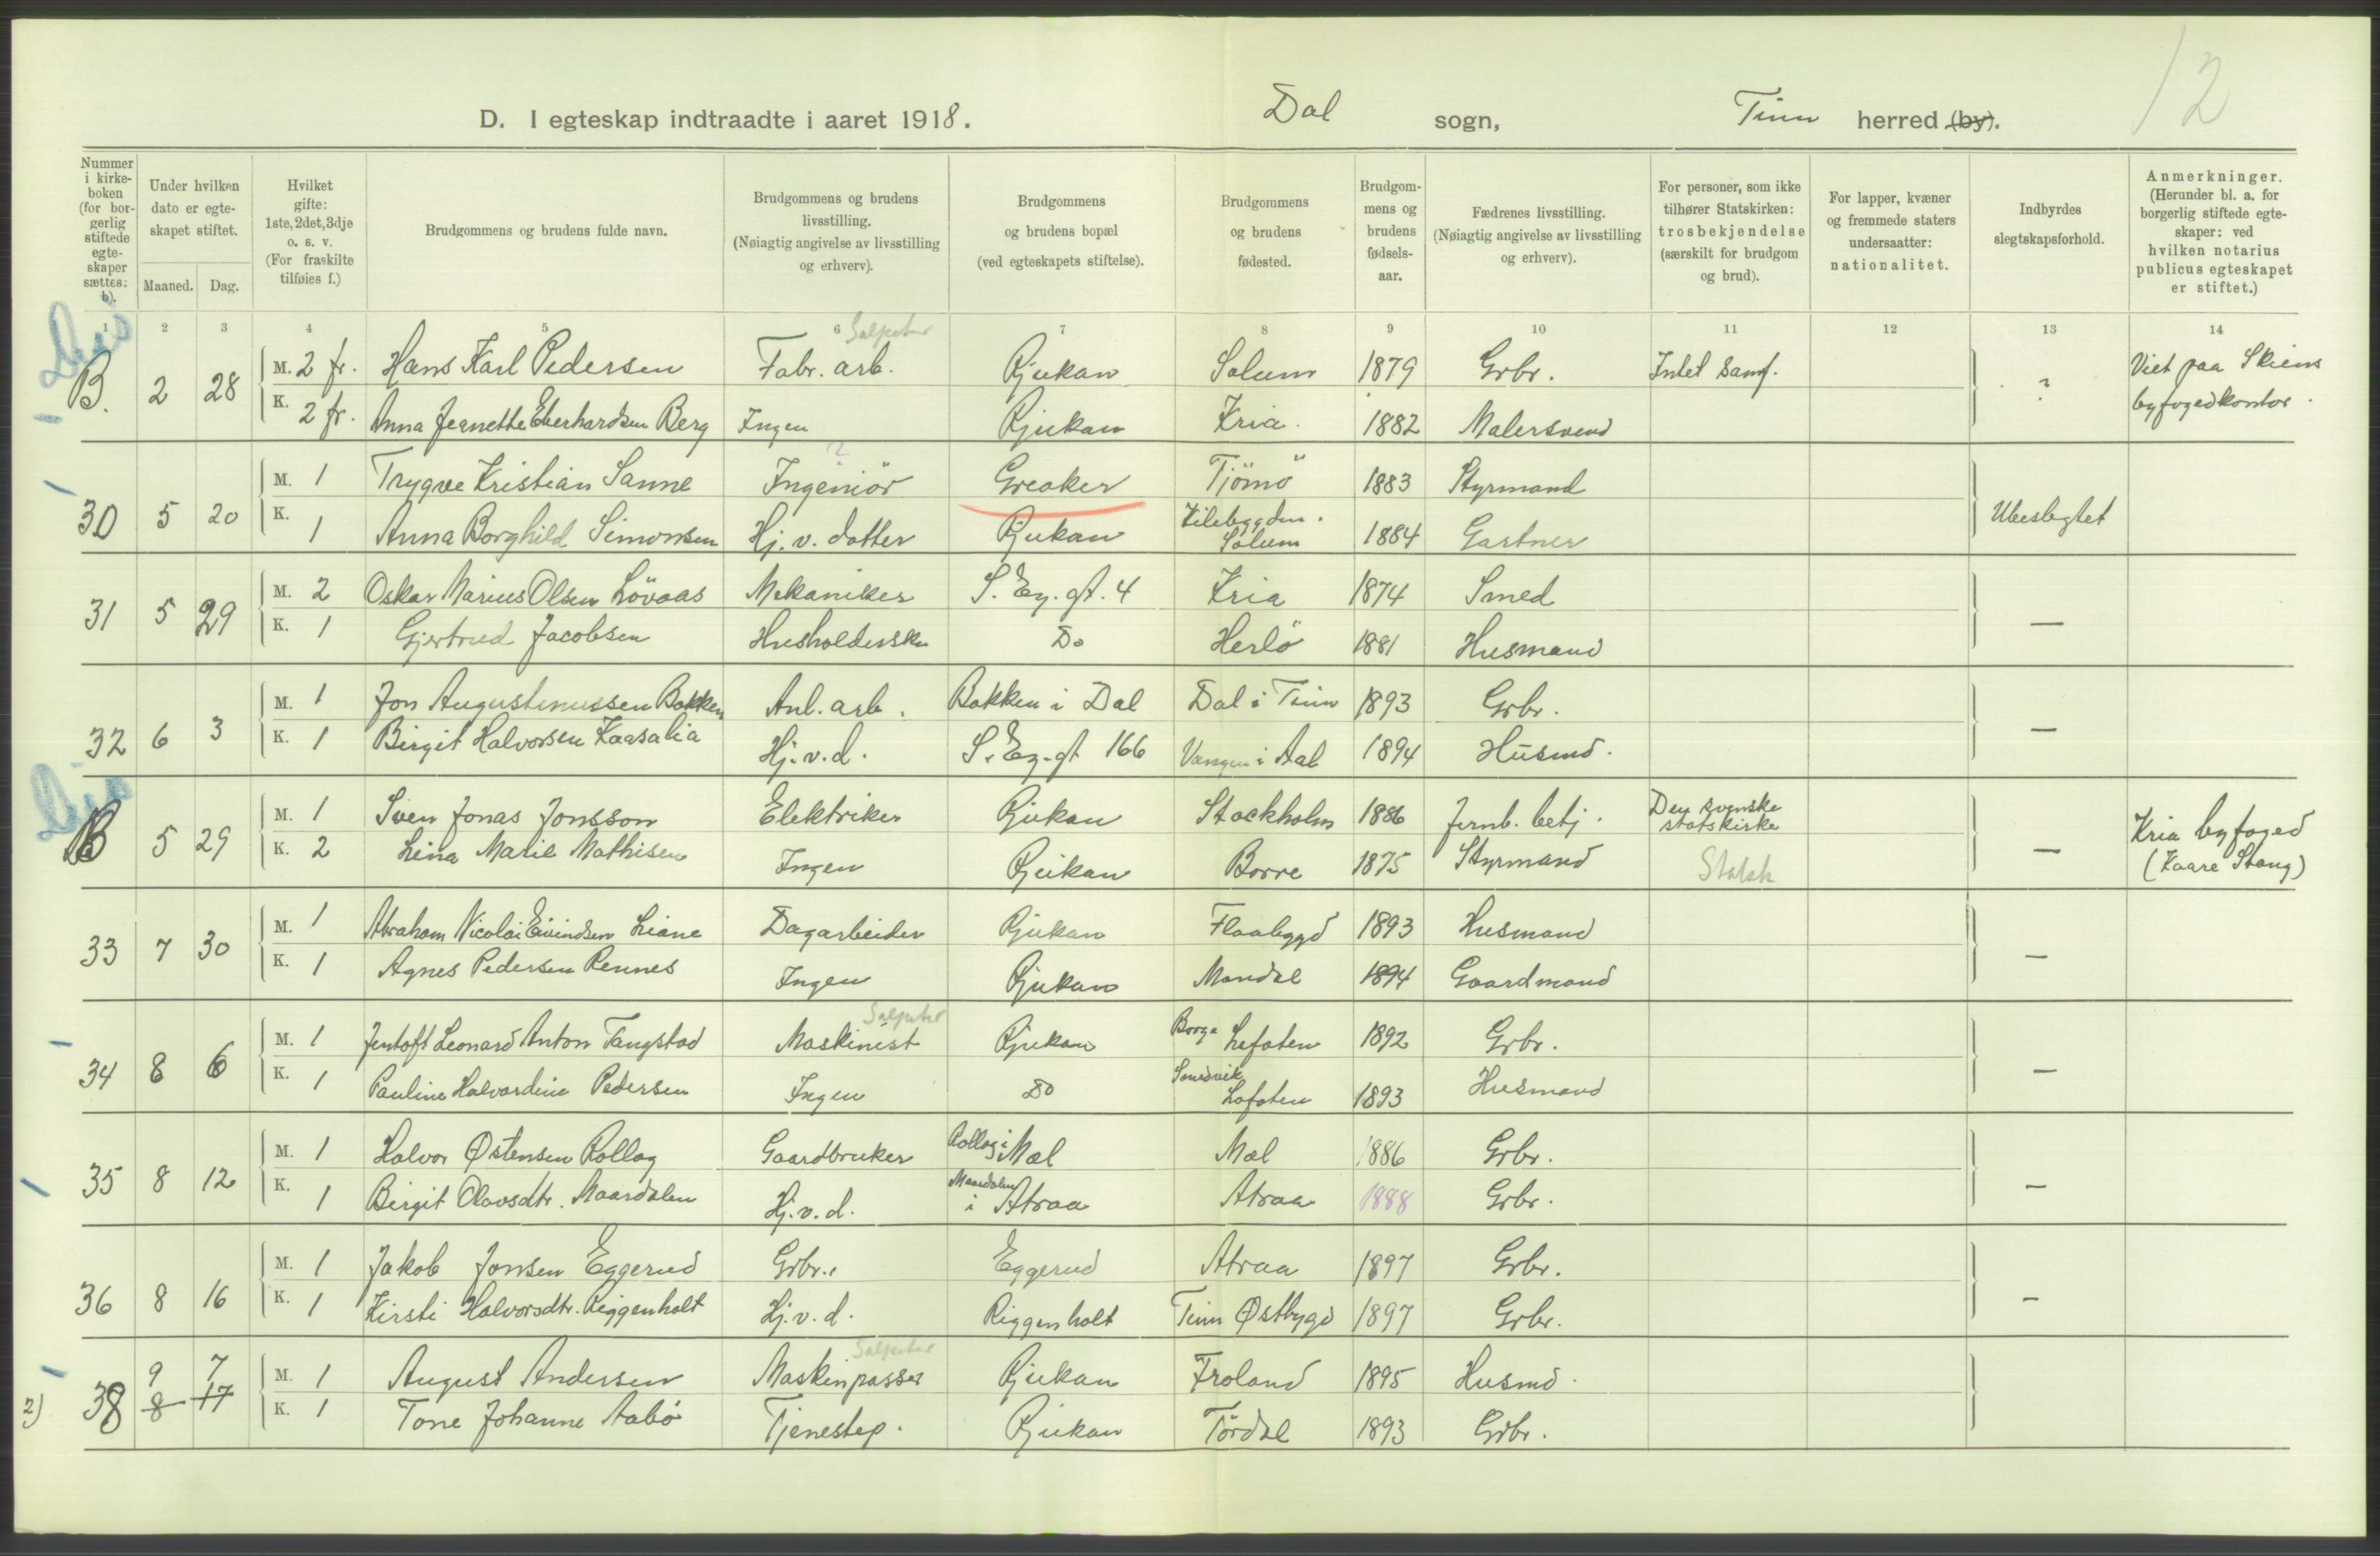 12
D. I egteskap indtraadte i aaret 1918. Dal sogn, Tinn herred (by).
Nummer i kirke-boken (for bor-gerlig stiftede egte-skaper sættes: b).
Under hvilken dato er egte-skapet stiftet.
Maaned. Dag.
Hvilket gifte: 1ste, 2det, 3dje o. s. v. (For fraskilte tilføies f.)
Brudgommens og brudens fulde navn.
Brudgommens og brudens livsstilling. (Nøiagtig angivelse av livsstilling og erhverv).
Brudgommens og brudens bopæl (ved egteskapets stiftelse).
Brudgommens og brudens fødested.
Brudgom-mens og brudens fødsels-aar.
Fædrenes livsstilling. (Nøiagtig angivelse av livsstilling og erhverv).
For personer, som ikke tilhører Statskirken: trosbekjendelse (særskilt for brudgom og brud).
For lapper, kvæner og fremmede staters undersaatter: nationalitet.
Indbyrdes slegtskapsforhold.
Anmerkninger. (Herunder bl. a. for borgerlig stiftede egte-skaper: ved hvilken notarius publicus egteskapet er stiftet.)
1 2 3 4 5 6 7 8 9 10 11 12 13 14
Salpeter
B. 2 28 M. 2 fr. Hans Karl Pedersen Fabr. arb. Rjukan Solum 1879 Grbr. Intet samf. ? Viet paa Skiens
K. 2 fr. Anna Jeanette Eberhardsen Berg Ingen Rjukan Kria. 1882 Malersvend byfogedkontor.
30 5 20 M. 1 Trygve Kristian Sanne Ingeniör Greaker Tjömö 1883 Styrmand Ubeslegtet
K. 1 Anna Borghild Simonsen Hj. v. datter Rjukan Kilebygden. Solum 1884 Gartner
31 5 29 M. 2 Oskar Marius Olsen Lövaas Mekaniker S. Ey. gt. 4 Kria 1874 Smed —
K. 1 Gjertrud Jacobsen Husholderske Do Herlö 1881 Husmand
32 6 3 M. 1 Jon Augustinussen Bakken Anl. arb. Bakken i Dal Dal i Tinn 1893 Grbr. —
K. 1 Birgit Halvorsen Kaasalia Hj. v. d. S. Ey. gt 166 Vangen i Aal 1894 Husmd.
B 5 29 M. 1 Sven Jonas Jonsson Elektriker Rjukan Stockholm 1886 Jernb. betj. Den svenske statskirke — Kria byfoged
K. 2 Lina Marie Mathisen Ingen Rjukan Borre 1875 Styrmand Statsk (Kaare Stang)
33 7 30 M. 1 Abraham Nicolai Eivindsen Liane Dagarbeider Rjukan Flaabygd 1893 Husmand —
K. 1 Agnes Pedersen Rennes Ingen Rjukan Mandal 1894 Gaardmand
Salpeter
34 8 6 M. 1 Jentoft Leonard Anton Tangstad Maskinist Rjukan Borge Lofoten 1892 Grbr. —
K. 1 Pauline Halvardine Pedersen Ingen Do Smedvik Lofoten 1893 Husmand
35 8 12 M. 1 Halvor Østensen Rollag Gaardbruker Rollag i Mæl Mæl 1886 Grbr. —
K. 1 Birgit Olavsdtr. Maardalen Hj. v. d. Maardalen i Atraa Atraa 1888 Grbr.
36 8 16 M. 1 Jakob Jonsen Eggerud Grbr. Eggerud Atraa 1897 Grbr. —
K. 1 Kirsti Halvorsdtr. Riggenholt Hj. v. d. Riggenholt Tinn Østbygd 1897 Grbr.
Salpeter
9 7
2) 38 8 17 M. 1 August Andersen Maskinpasser Rjukan Froland 1895 Husmd.
K. 1 Tone Johanne Aabö Tjenestep. Rjukan Tördal 1893 Grbr.